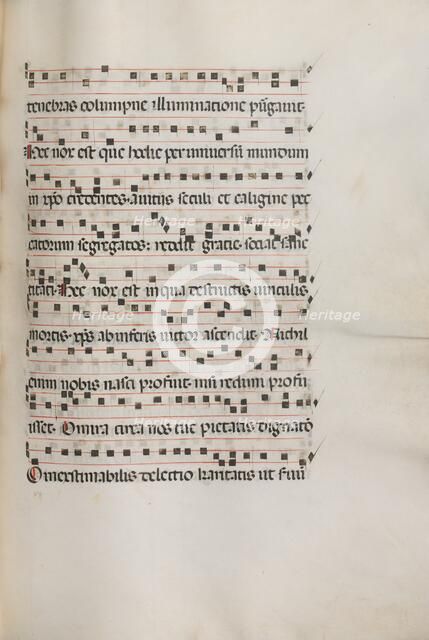 tenebras columpne illuminatione purgauit·
Hec nox est que hodie per uniuersum mundum
in xpo credentes· a uitiis seculi et caligine pec
catorum segregatos: reddit gratie· sociat sanc
titati· Hec nox est in qua destructis uinculis
mortis· xps ab inferis uictor ascendit· Nichil
enim nobis nasci profuit· nisi redimi profu
isset· O mira circa nos tue pietatis dignatio
O inextimabilis dilectio karitatis ut seruum